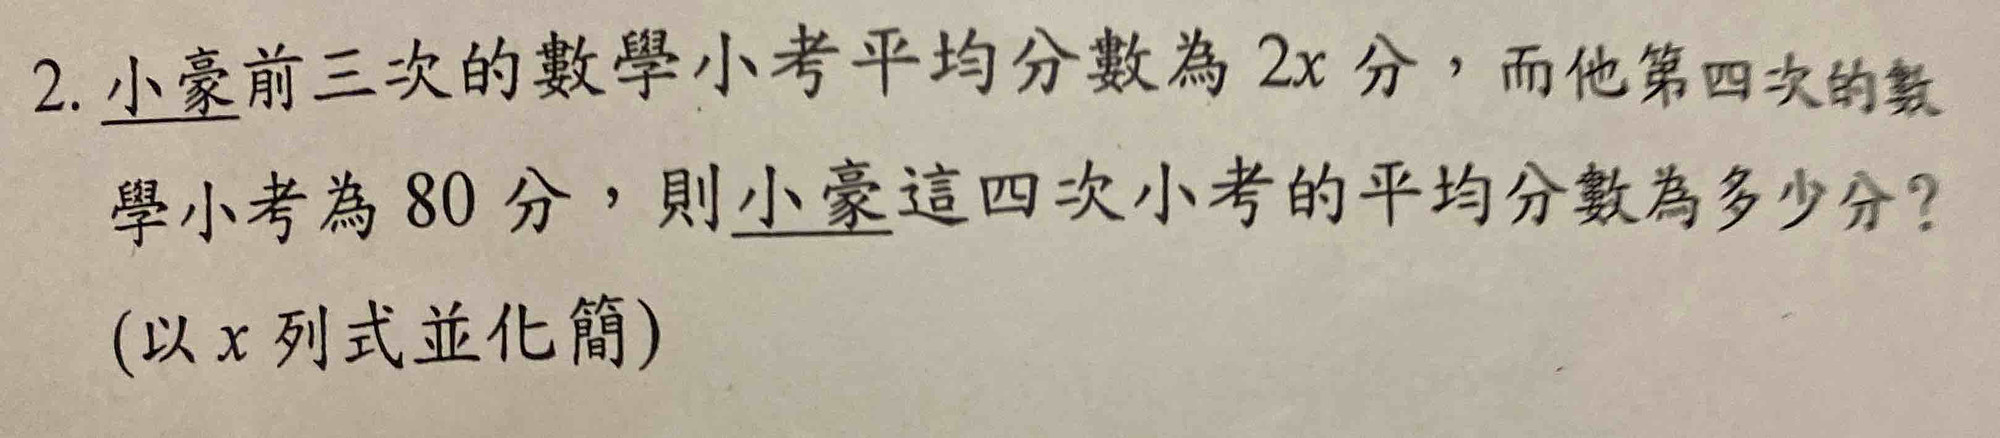 2. 小豪前三次的數學小考平均分數為 2x 分，而他第四次的數
學小考為 80 分，則小豪這四次小考的平均分數為多少分？
(以 x 列式並化簡)